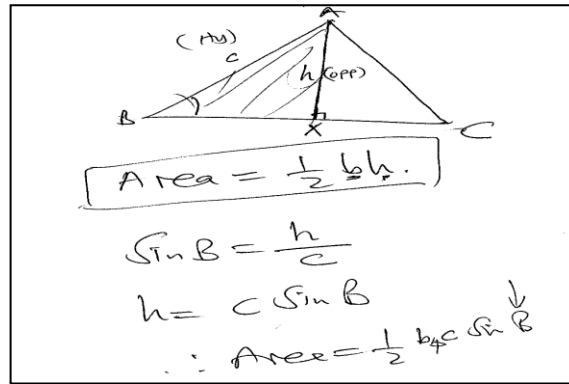 A
(Hy)
c
h (opp)
B
X
C
Area = 1/2 bh.
Sin B = h/c
h = c Sin B
∴ Area = 1/2 b c Sin B